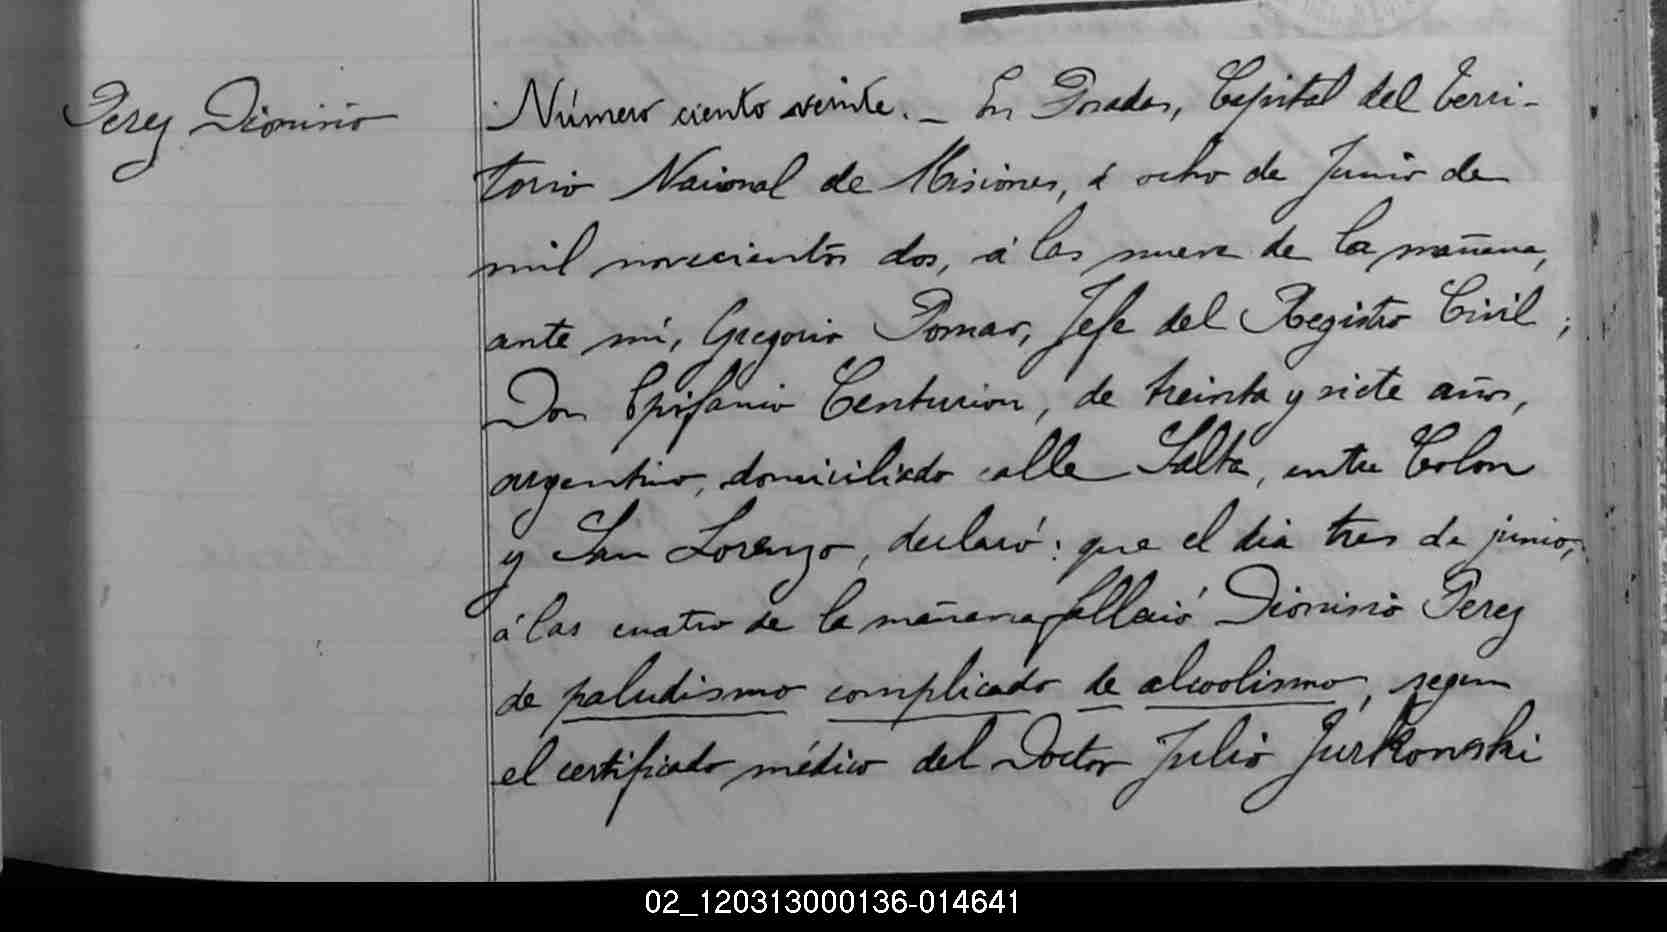 Perez Dionisio
Número ciento veinte. _ En Posadas, Capital del Terri-
torio Nacional de Misiones, á ocho de Junio de
mil novecientos dos, á las nueve de la mañana,
ante mí, Gregorio Pomar, Jefe del Registro Civil;
Don Epifanio Centurion, de treinta y siete años,
argentino, domiciliado calle Salta, entre Colon
y San Lorenzo, declaró: que el dia tres de junio,
á las cuatro de la mañana falleció Dionisio Perez
de paludismo complicado de alcoolismo, segun
el certificado médico del Doctor Julio Jurkonski
02_120313000136-014641